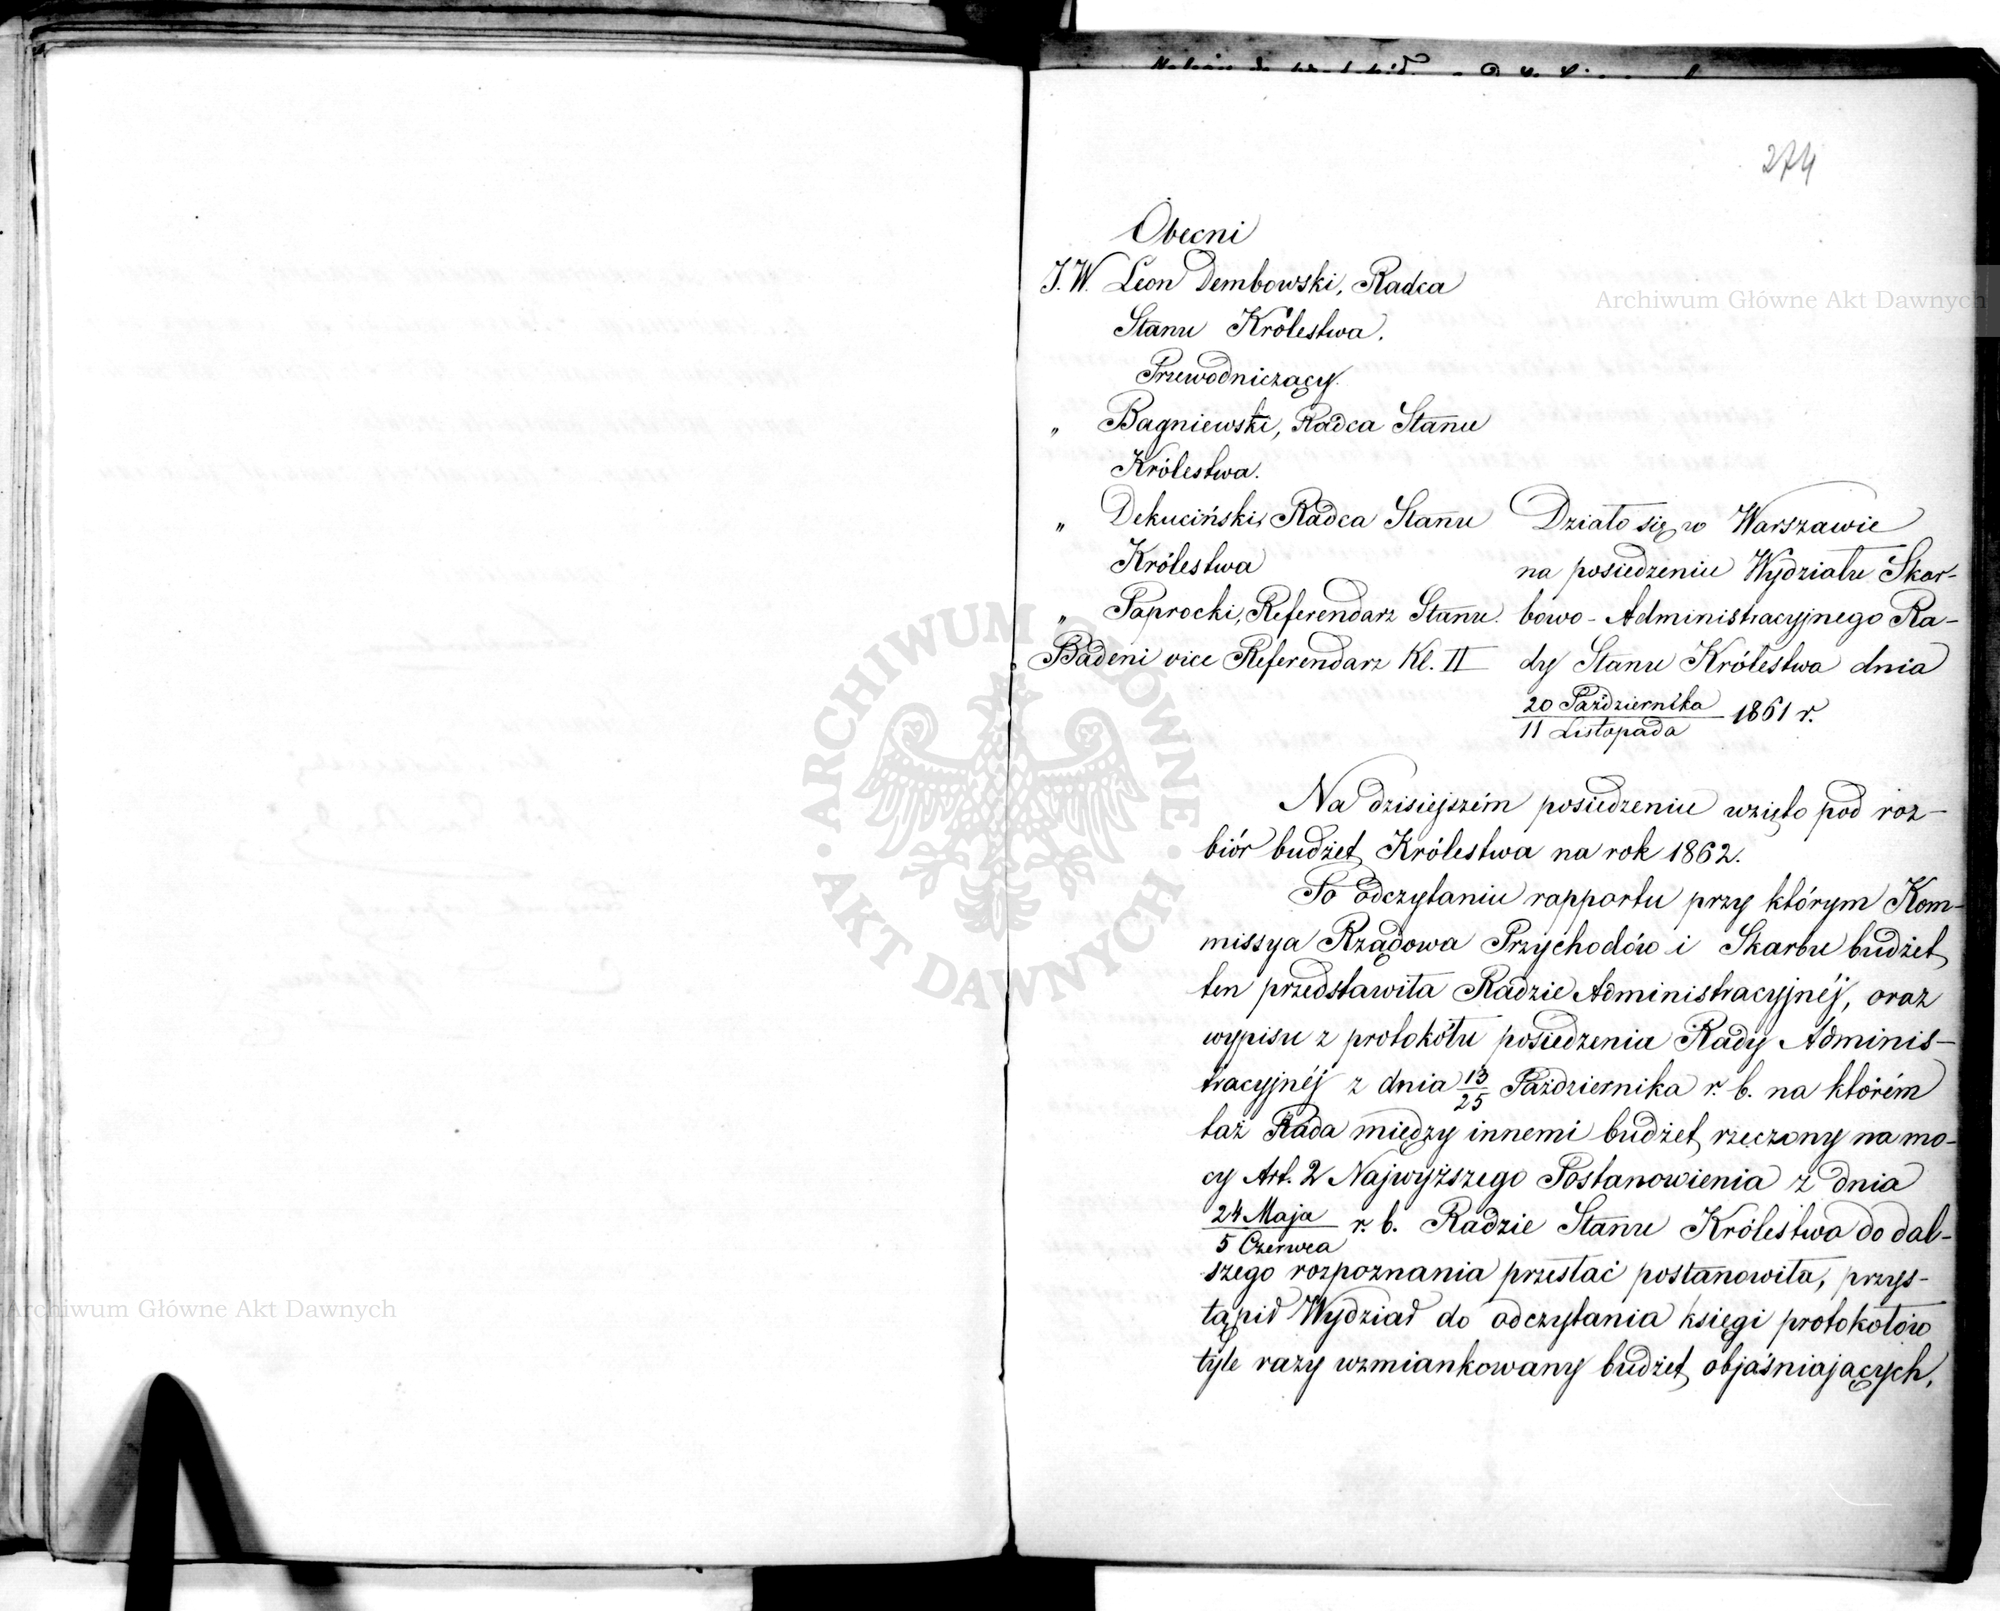 274
Obecni
J.W. Leon Dembowski, Radca
Stanu Królestwa.
Przewodniczący.
„ Bagniewski, Radca Stanu
Królestwa.
„ Dekuciński, Radca Stanu
Królestwa
„ Paprocki, Referendarz Stanu.
„ Badeni vice Referendarz Kl. II
Działo się w Warszawie
na posiedzeniu Wydziału Skar-
bowo-Administracyjnego Ra-
dy Stanu Królestwa dnia
20 Października
11 Listopada 1861 r.
Na dzisiejszém posiedzeniu wzięto pod roz-
biór budżet Królestwa na rok 1862.
Po odczytaniu rapportu przy którym Kom-
missya Rządowa Przychodów i Skarbu budżet
ten przedstawiła Radzie Administracyjnéj, oraz
wypisu z protokółu posiedzenia Rady Adminis-
tracyjnéj z dnia 13/25 Października r. b. na którém
taż Rada między innemi budżet rzeczony na mo-
cy Art. 2 Najwyższego Postanowienia z dnia
24 Maja
5 Czerwca r. b. Radzie Stanu Królestwa do dal-
szego rozpoznania przesłać postanowiła, przys-
tąpił Wydział do odczytania księgi protokołów
tyle razy wzmiankowany budżet objaśniających,
Archiwum Główne Akt Dawnych
Archiwum Główne Akt Dawnych
ARCHIWUM GŁÓWNE
AKT DAWNYCH